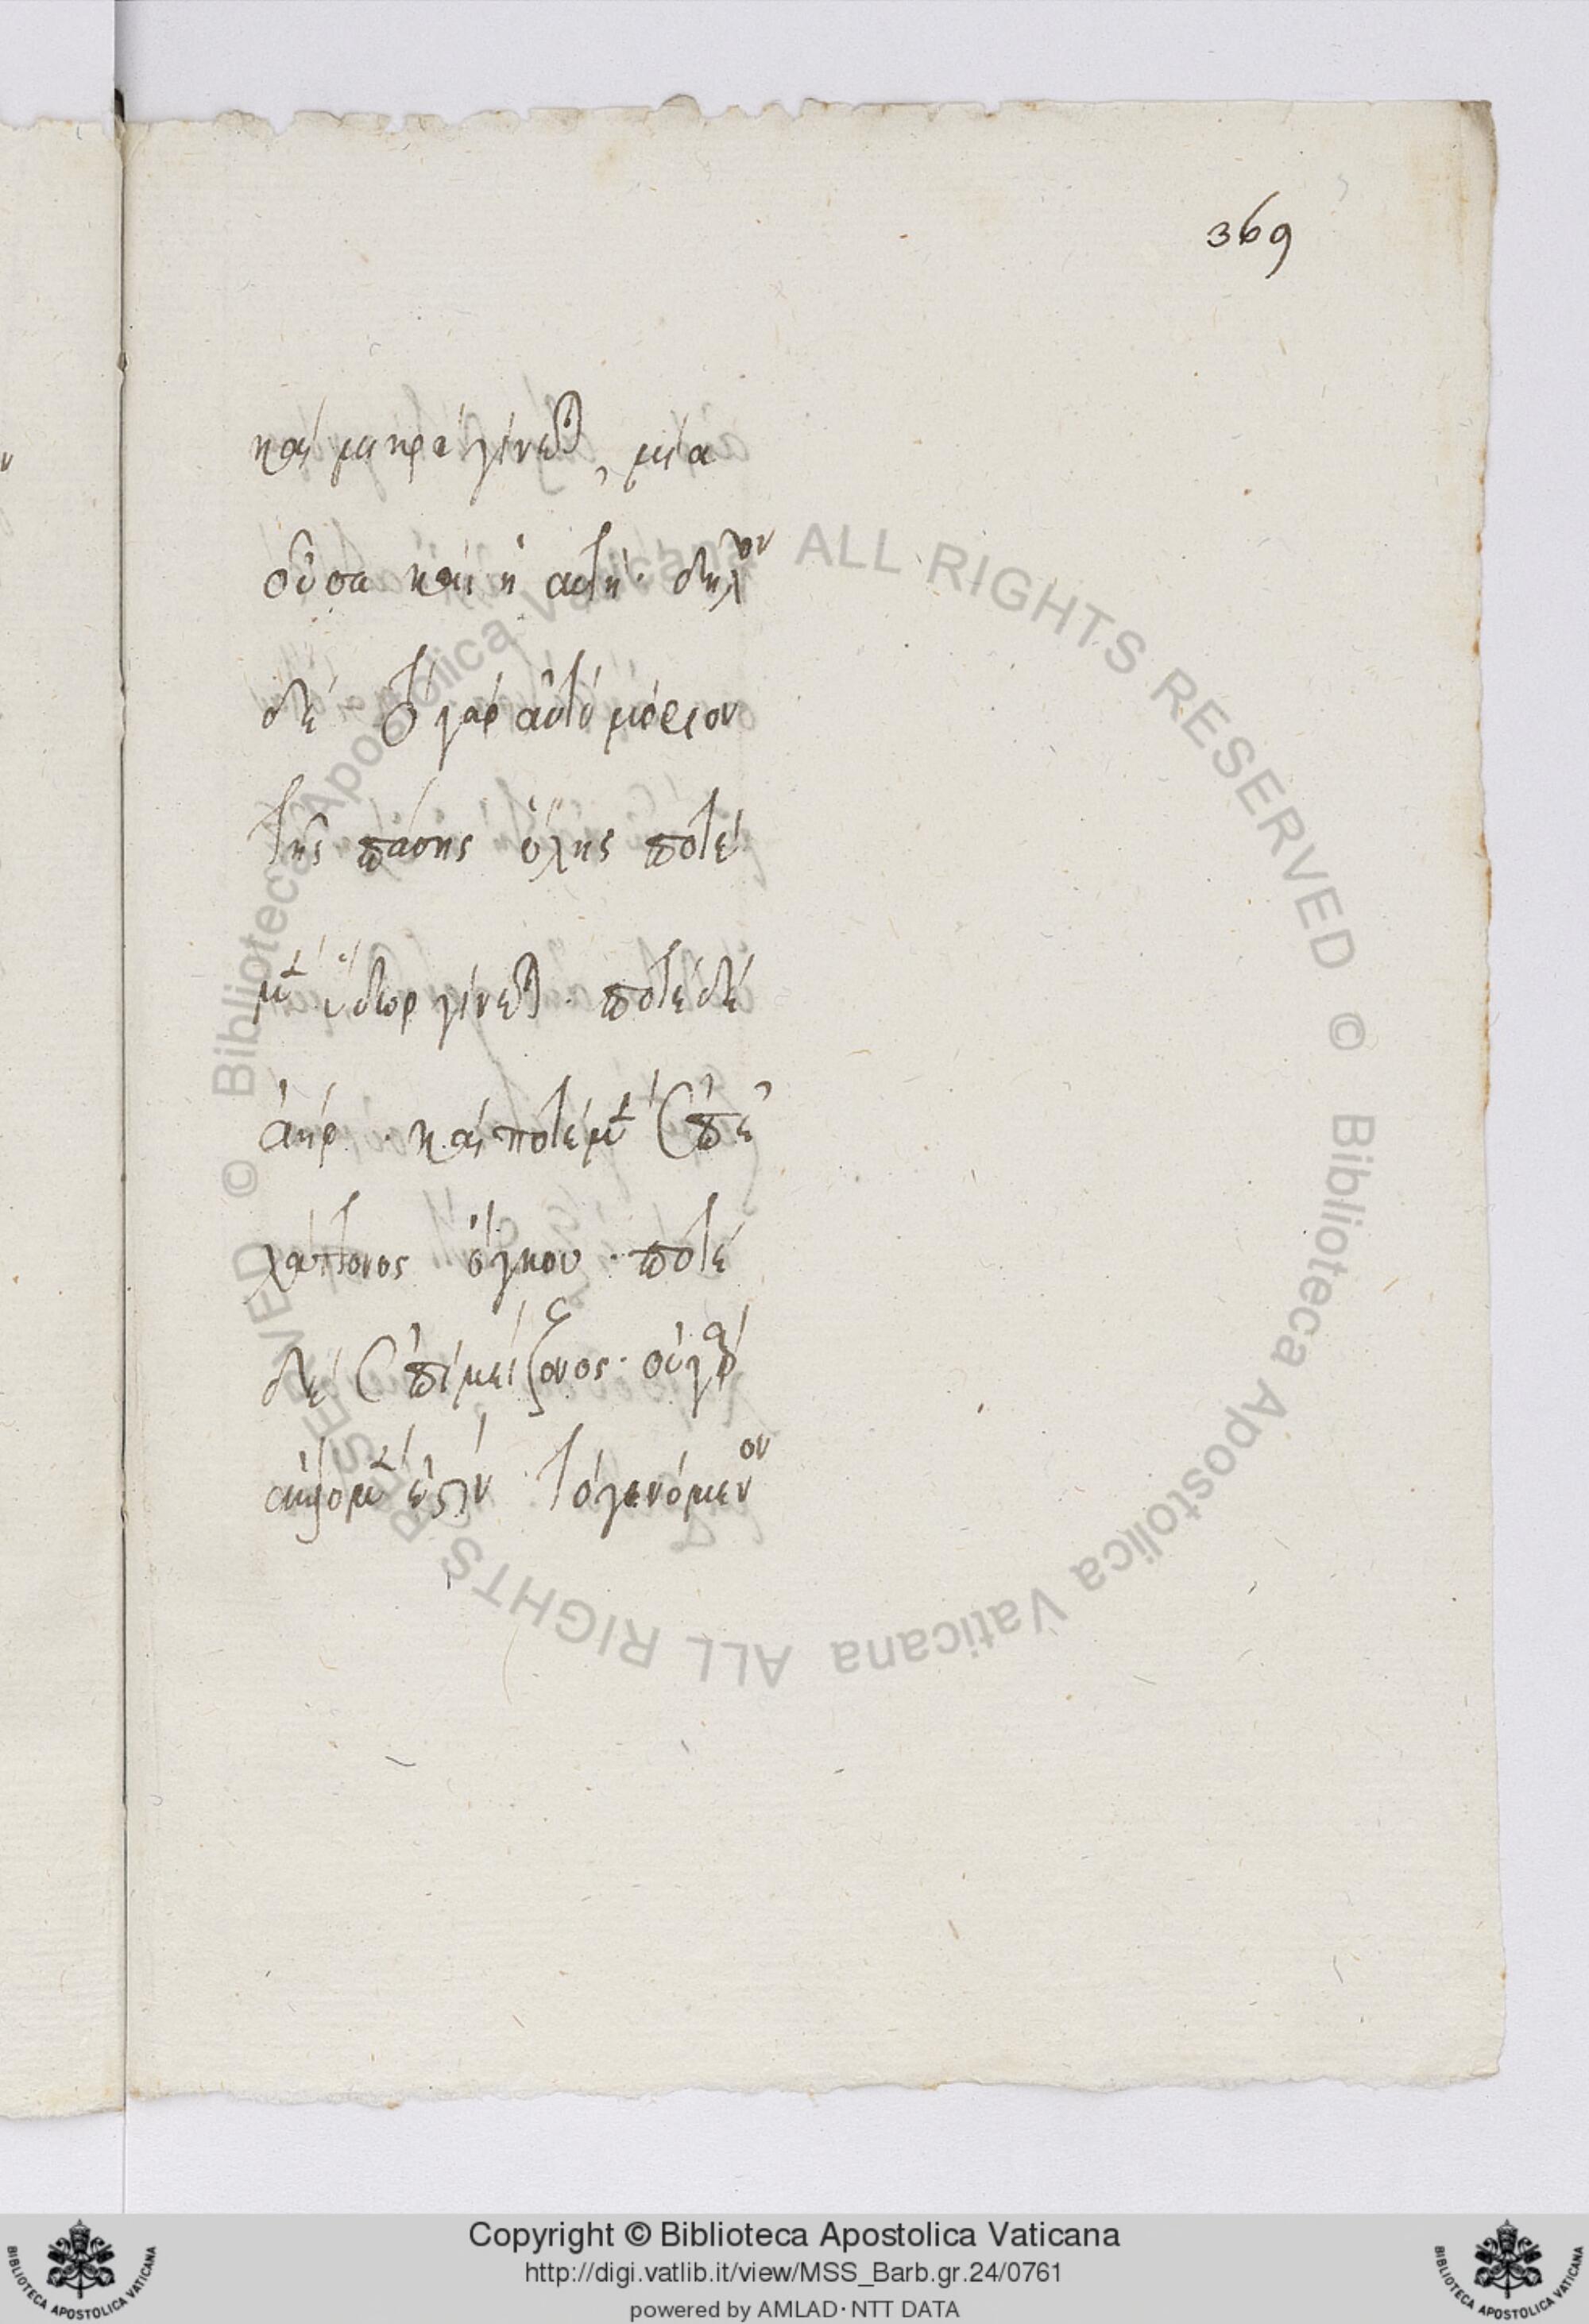 369
καὶ μικρὰ γίνεται, μία
οὖσα καὶ ἡ αὐτὴ· δῆλον
δέ τὸ γὰρ αὐτὸ μόριον
τῆς πάσης ὕλης ποτὲ
μὲν ὕδωρ γίνεται· ποτὲ δὲ
ἀήρ· καὶ ποτὲ μὲν ἐπ' ἐ
λάττονος ὄγκου· ποτὲ
δὲ ἐπὶ μείζονος· οὐ γὰρ
ἐστὶν τὸ γενόμενον
© Biblioteca Apostolica Vaticana ALL RIGHTS RESERVED © Biblioteca Apostolica Vaticana ALL RIGHTS RESERVED
Copyright © Biblioteca Apostolica Vaticana
http://digi.vatlib.it/view/MSS_Barb.gr.24/0761
powered by AMLAD·NTT DATA
BIBLIOTECA APOSTOLICA VATICANA
BIBLIOTECA APOSTOLICA VATICANA